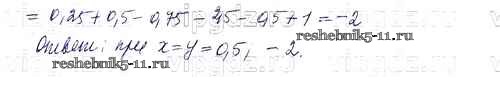 = 0,25 + 0,5 - 0,75 - 2,5 - 0,5 + 1 = -2
Ответ: при x = y = 0,5, -2.
reshebnik5-11.ru reshebnik5-11.ru